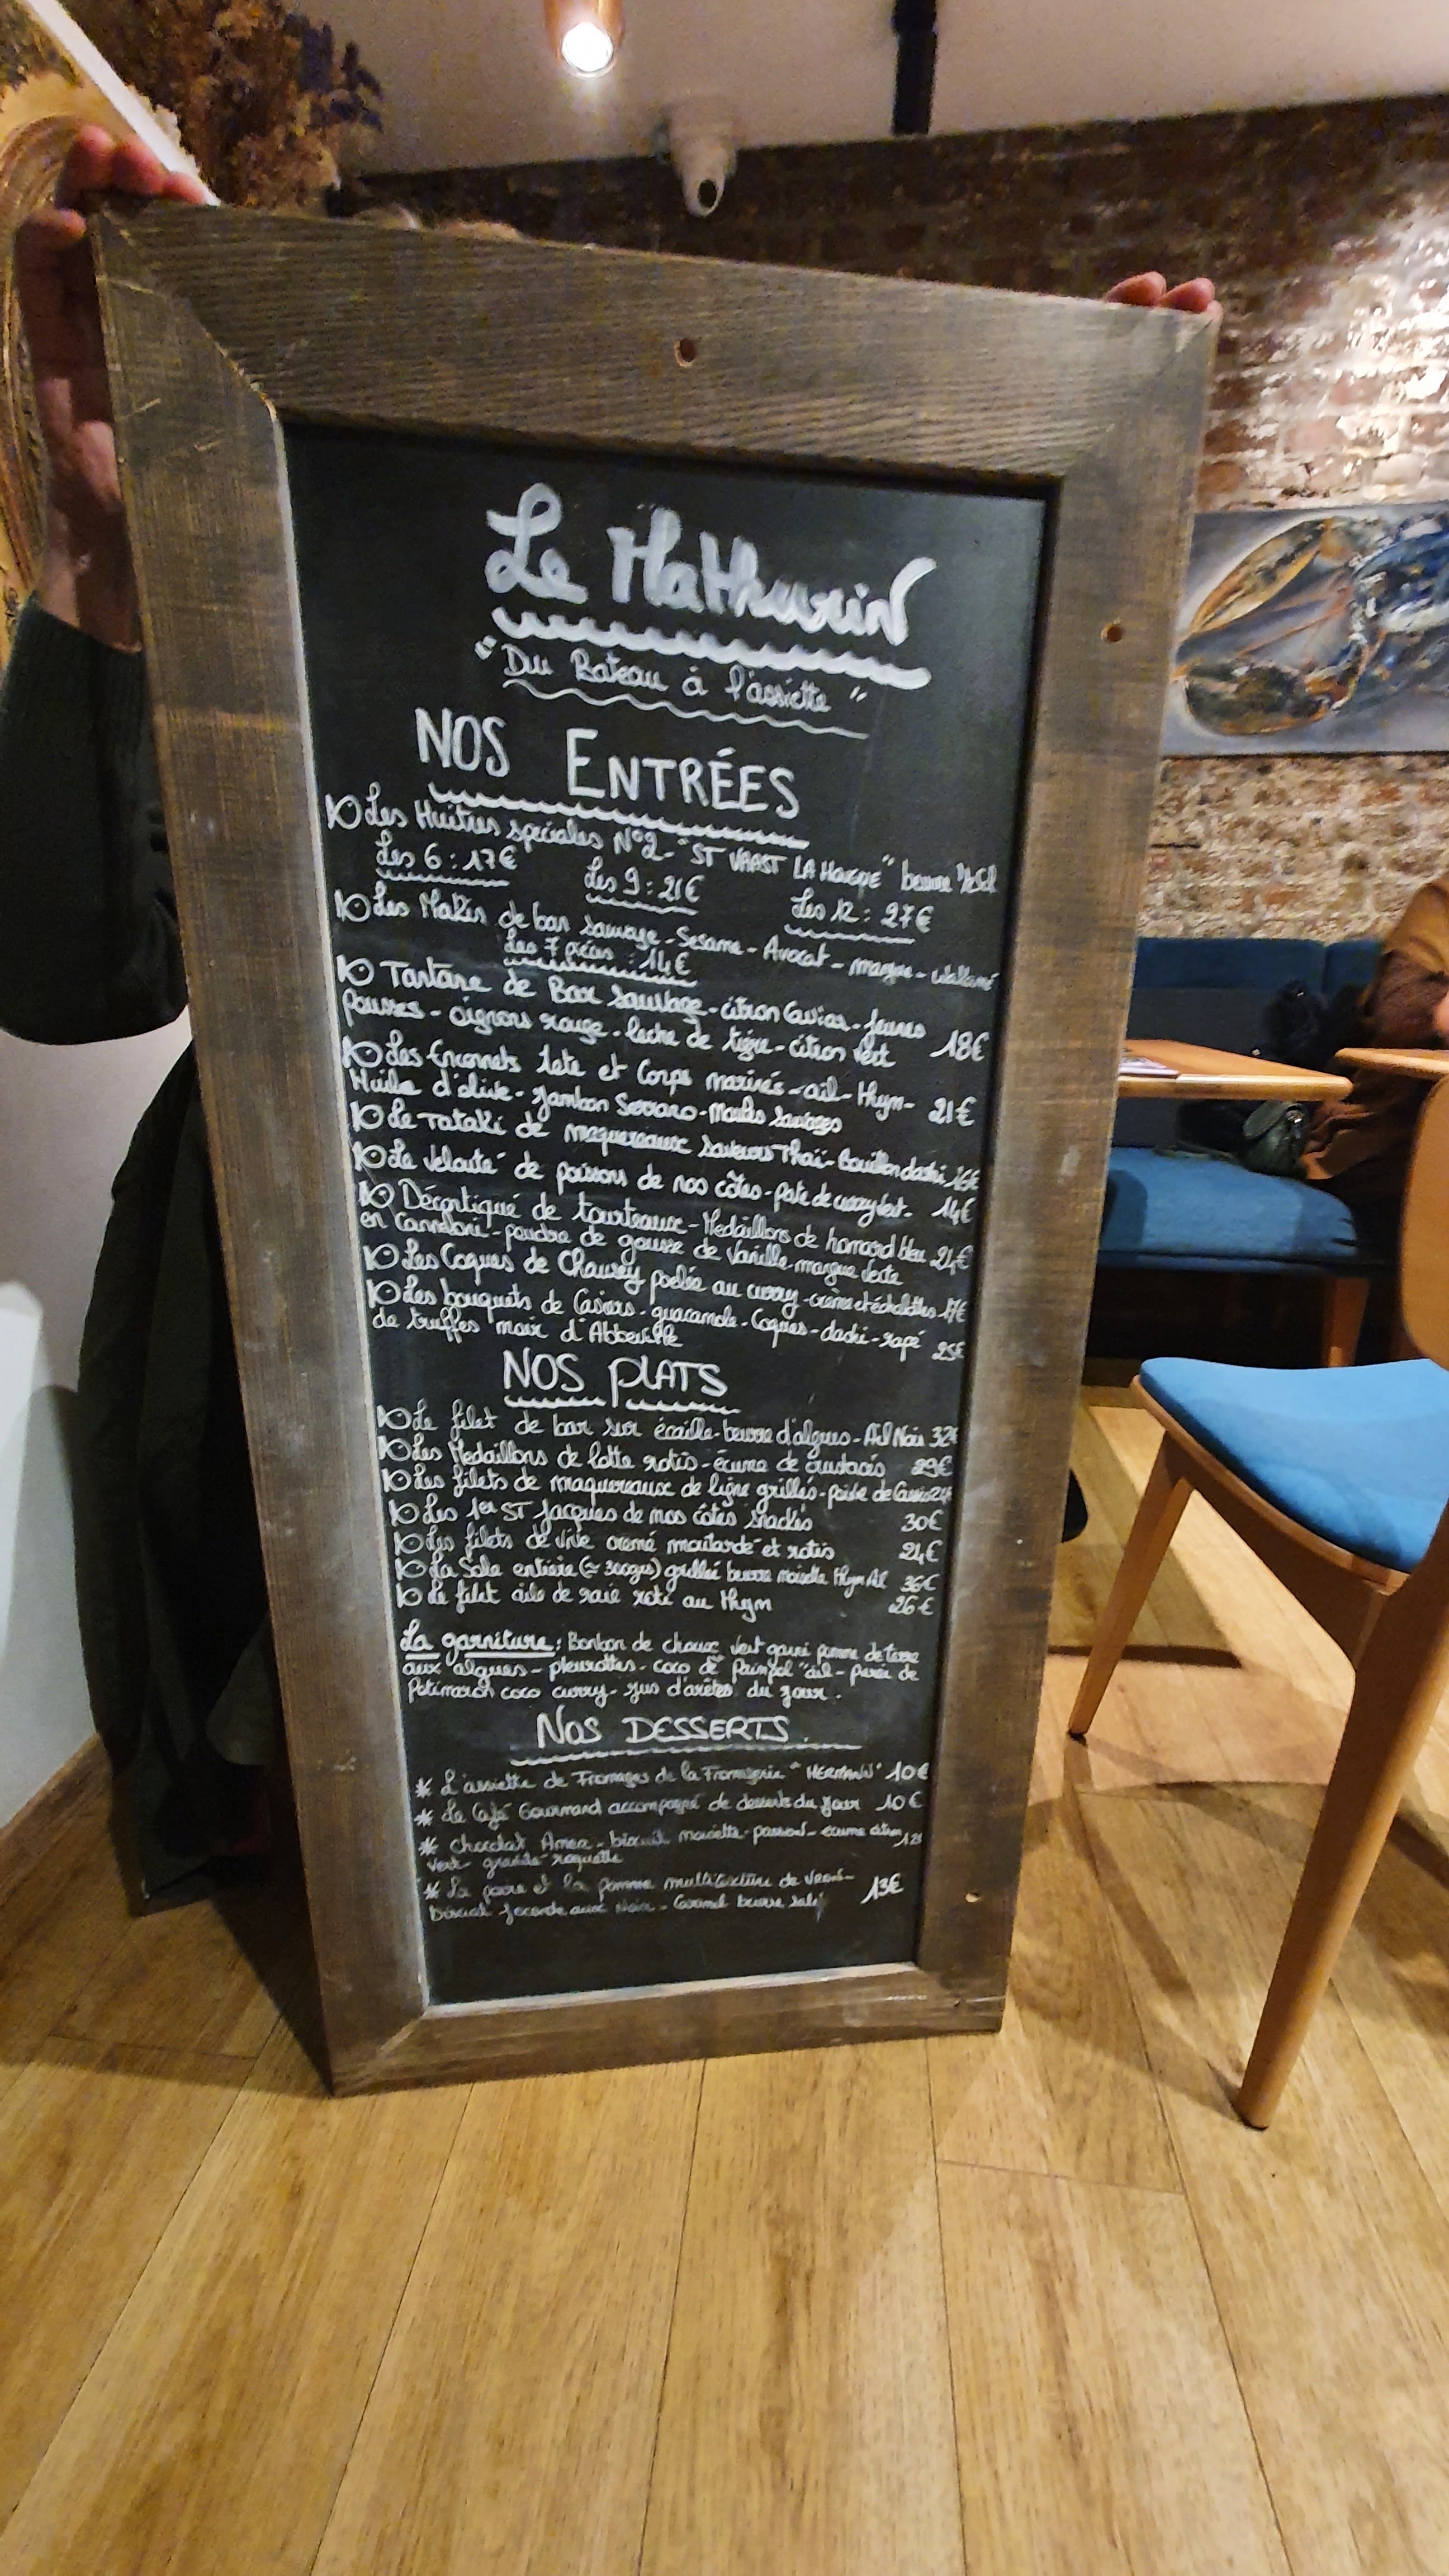 Le Mathurin
"Du Bateau à l'assiette"
NOS ENTRÉES
Les Huitres spéciales N°2 - "ST VAAST LA HOUGUE" beurre 1/2 Sel
Les 6 : 17€ Les 9 : 21€ Les 12 : 27€
Les Makis de bar sauvage - Sesame - Avocat - mangue -
Les 7 pièces : 14€
Tartare de Bar sauvage - citron Caviar - jeunes
pousses - oignons rouge - leche de tigre - citron vert 18€
Les Encornets tete et Corps marinés - ail - thym -
Huile d'olive - jambon Serrano - Moules sauvages 21€
Le Tataki de maquereaux saveurs Thaï - Bouillon dashi 16€
Le Velouté de poissons de nos côtes - pate de curry vert. 14€
Décortiqué de tourteaux - Medaillons de homard bleu 24€
en Canneloni - poudre de gousse de Vanille - mangue verte
Les Coques de Chausey poelée au curry - crème et échalottes 17€
Les bouquets de Casiers - guacamole - Coques - dashi - rapé
de truffes noir d'Abbeville 25€
NOS PLATS
Le filet de bar sur écaille - beurre d'algues - Ail Noir 32€
Les Medaillons de lotte rotis - écume de crustacés 29€
Les filets de maquereaux de ligne grillés - de
Les 1er ST Jacques de nos côtes snackés 30€
Les filets de vive cremé moutardé et rotis 24€
La Sole entière (≈ 300grs) grillée beurre noisette thym Ail 36€
Le filet aile de raie roti au thym 26€
La garniture : Bonbon de choux vert garni pomme de terre
aux algues - pleurottes - coco de "Paimpol" ail - purée de
Potimaron coco curry - jus d'arêtes du jour.
NOS DESSERTS
* L'assiette de Fromages de la Fromagerie "HERMANN" 10€
* Le Café Gourmand accompagné de desserts du jour 10€
* Chocolat Amer - biscuit noisette - passion - écume citron
vert - granité roquette
* La poire et la pomme multitexture de
biscuit Joconde aux Noix - Caramel beurre salé 13€